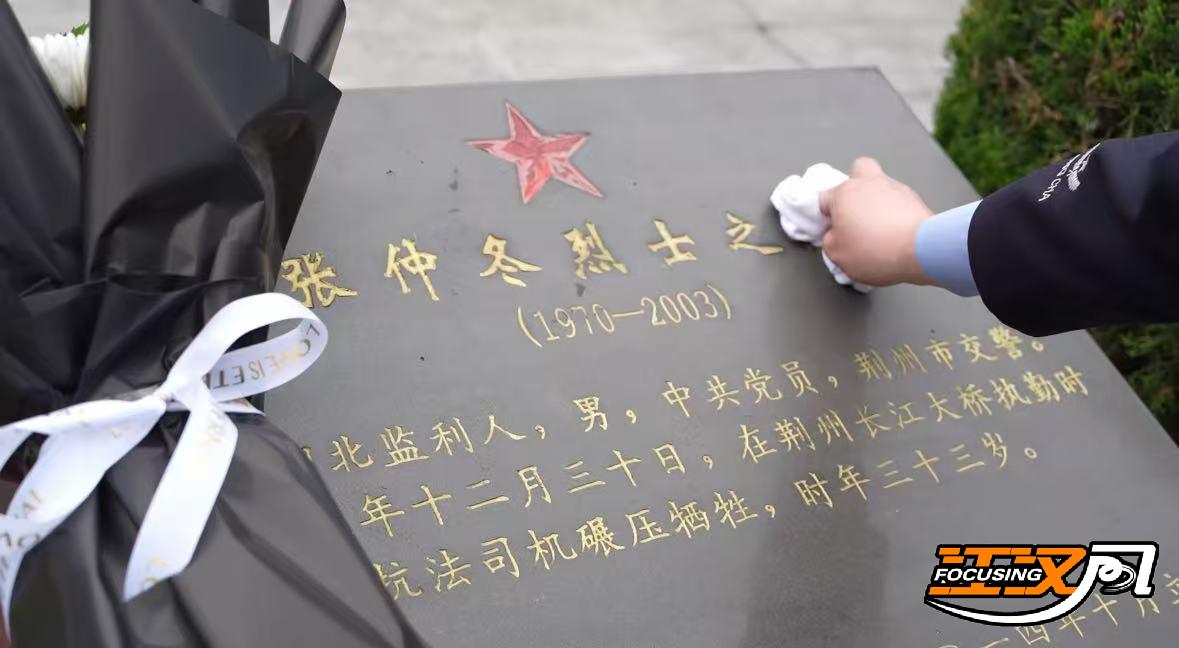 张仲冬烈士之
(1970—2003)
北监利人，男，中共党员，荆州市交警。
年十二月三十日，在荆州长江大桥执勤时
抗法司机碾压牺牲，时年三十三岁。
一四年十月立
FOCUSING
江汉风